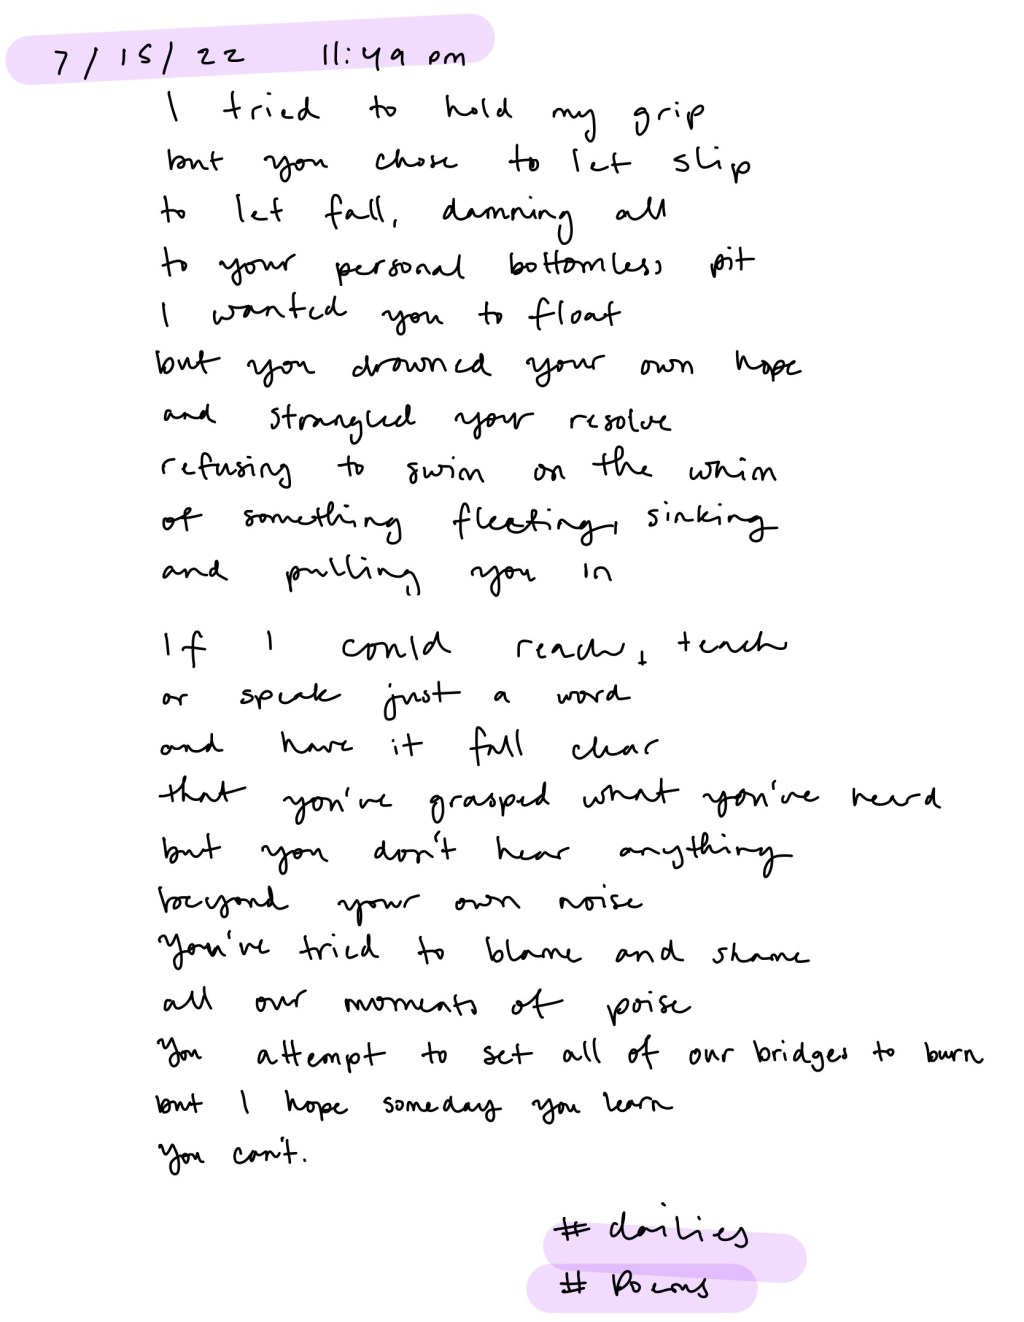 7/15/22 11:49 pm
I tried to hold my grip
but you chose to let slip
to let fall, damning all
to your personal bottomless pit
I wanted you to float
but you drowned your own hope
and strangled your resolve
refusing to swim on the whim
of something fleeting, sinking
and pulling you in
If I could reach, teach
or speak just a word
and have it fall clear
that you've grasped what you've heard
but you don't hear anything
beyond your own noise
You've tried to blame and shame
all our moments of poise
You attempt to set all of our bridges to burn
but I hope someday you learn
You can't.
# dailies
# Poems